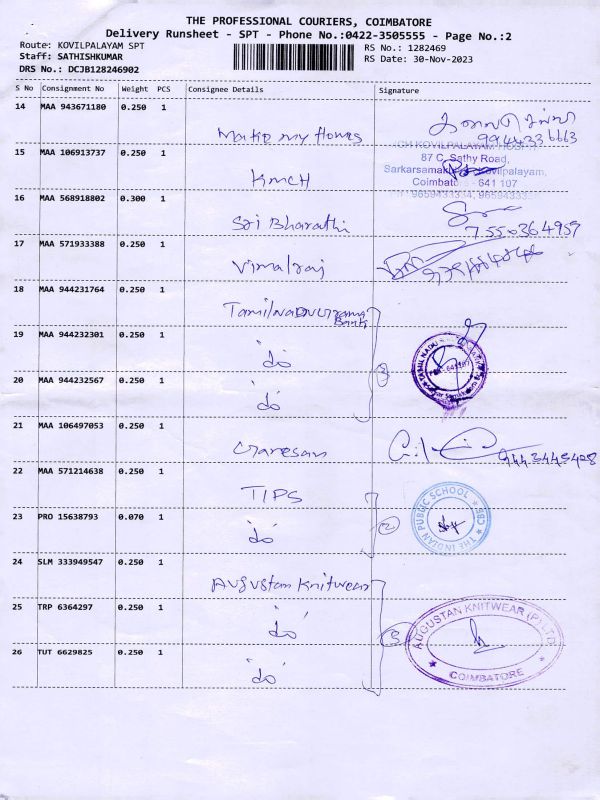 THE PROFESSIONAL COURIERS, COIMBATORE
Delivery Runsheet - SPT - Phone No.:0422-3505555 - Page No.:2
Route: KOVILPALAYAM SPT
Staff: SATHISHKUMAR
DRS No.: DCJB128246902
RS No.: 1282469
RS Date: 30-Nov-2023
S No Consignment No Weight PCS Consignee Details Signature
14 MAA 943671180 0.250 1
Make my Homes
9944336663
15 MAA 106913737 0.250 1
KMCH
KOVILPALAYAM
87 C, Sathy Road,
Kovilpalayam,
Coimbatore - 641 107
16 MAA 568918802 0.300 1
Sri Bharathi
7550364959
17 MAA 571933388 0.250 1
Vimalraj
18 MAA 944231764 0.250 1
Tamilnadu Grama
Bank
19 MAA 944232301 0.250 1
do
3
TAMIL NADU
20 MAA 944232567 0.250 1
do
21 MAA 106497053 0.250 1
Ganesan
9443445408
22 MAA 571214638 0.250 1
TIPS
23 PRO 15638793 0.070 1
do
2
THE INDIAN PUBLIC SCHOOL CBE
24 SLM 333949547 0.250 1
Augustan Knitwear
25 TRP 6364297 0.250 1
do
3
AUGUSTAN KNITWEAR (P) LTD
COIMBATORE
26 TUT 6629825 0.250 1
do